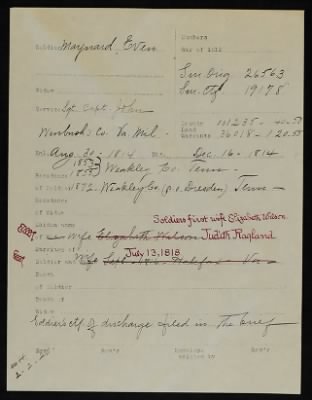 Numbers
Soldier Maynard, Even War of 1812
Surv. Orig 26563
Widow Surv. Ctf. 19178
Service Sgt. Capt. John
Bounty 101235-40-50
Winbush's Co. Va. Mil. Land Warrants 36018-120-55
Enl. Aug. 30-1814 Dis. Dec. 16-1814
1851
1855 } Weakley Co. Tenn
Residence
of Soldier 1872 Weakley Co. (P.O. Dresden) Tenn
Residence
of Widow
Soldiers first wife Elizabeth Wilson.
Maiden name
of Wife Elizabeth Wilson Judith Ragland
July 13, 1818
Marriage of
Soldier and Wife Sept. Halifax Va
Death
of Soldier
Death of
Widow
Soldier's ctf. of discharge filed in the brief